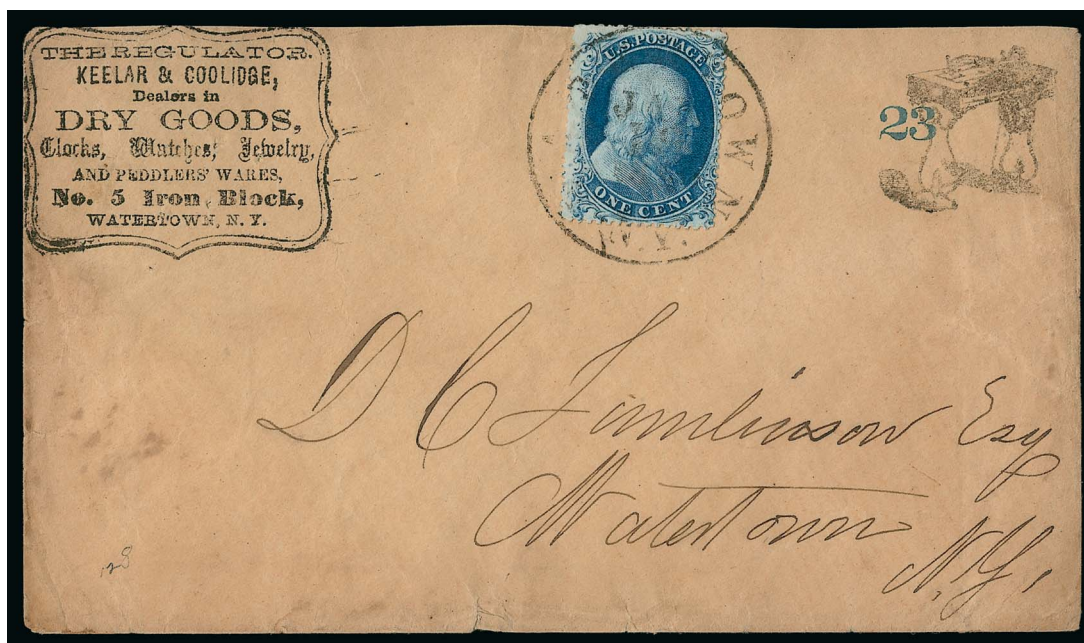 THE REGULATOR.
KEELAR & COOLIDGE,
Dealers in
DRY GOODS,
Clocks, Watches, Jewelry,
AND PEDDLERS' WARES,
No. 5 Iron Block,
WATERTOWN, N. Y.
U.S. POSTAGE
ONE CENT
OWN
N.Y.
23
D C Tomlinson Esq
Watertown
N.Y.